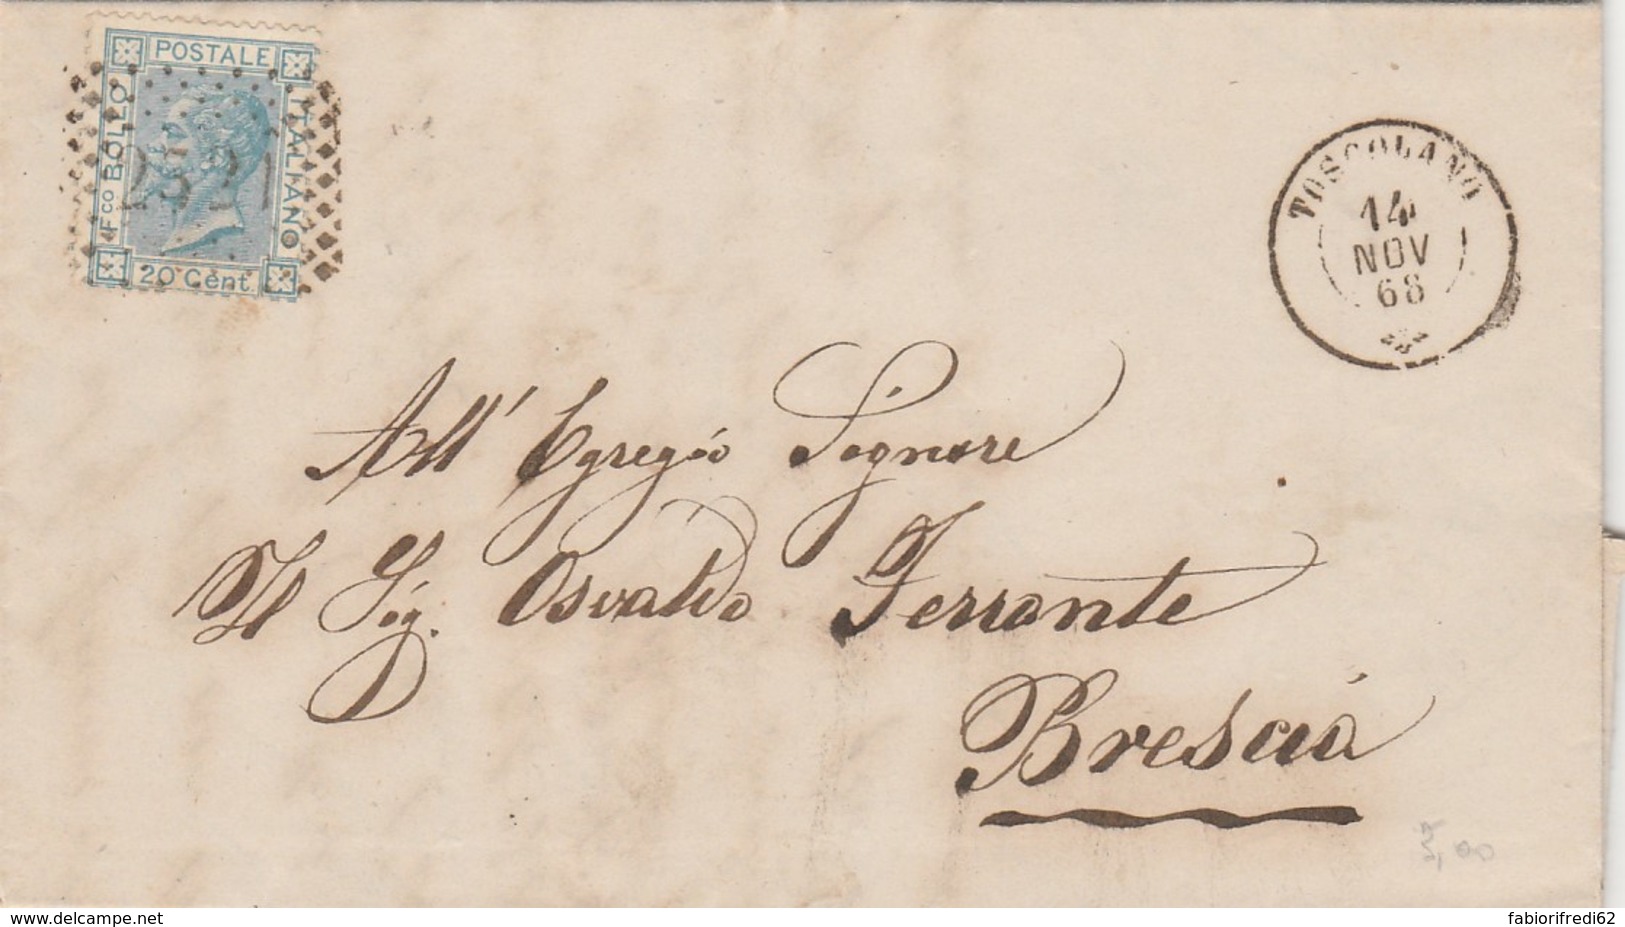 POSTALE
Fco BOLLO
ITALIANO
20 Cent.
TOSCOLANO
14
NOV
68
All' Egregio Signore
Il Sig. Osvaldo Ferrante
Brescia
www.delcampe.net
fabiorifredi62